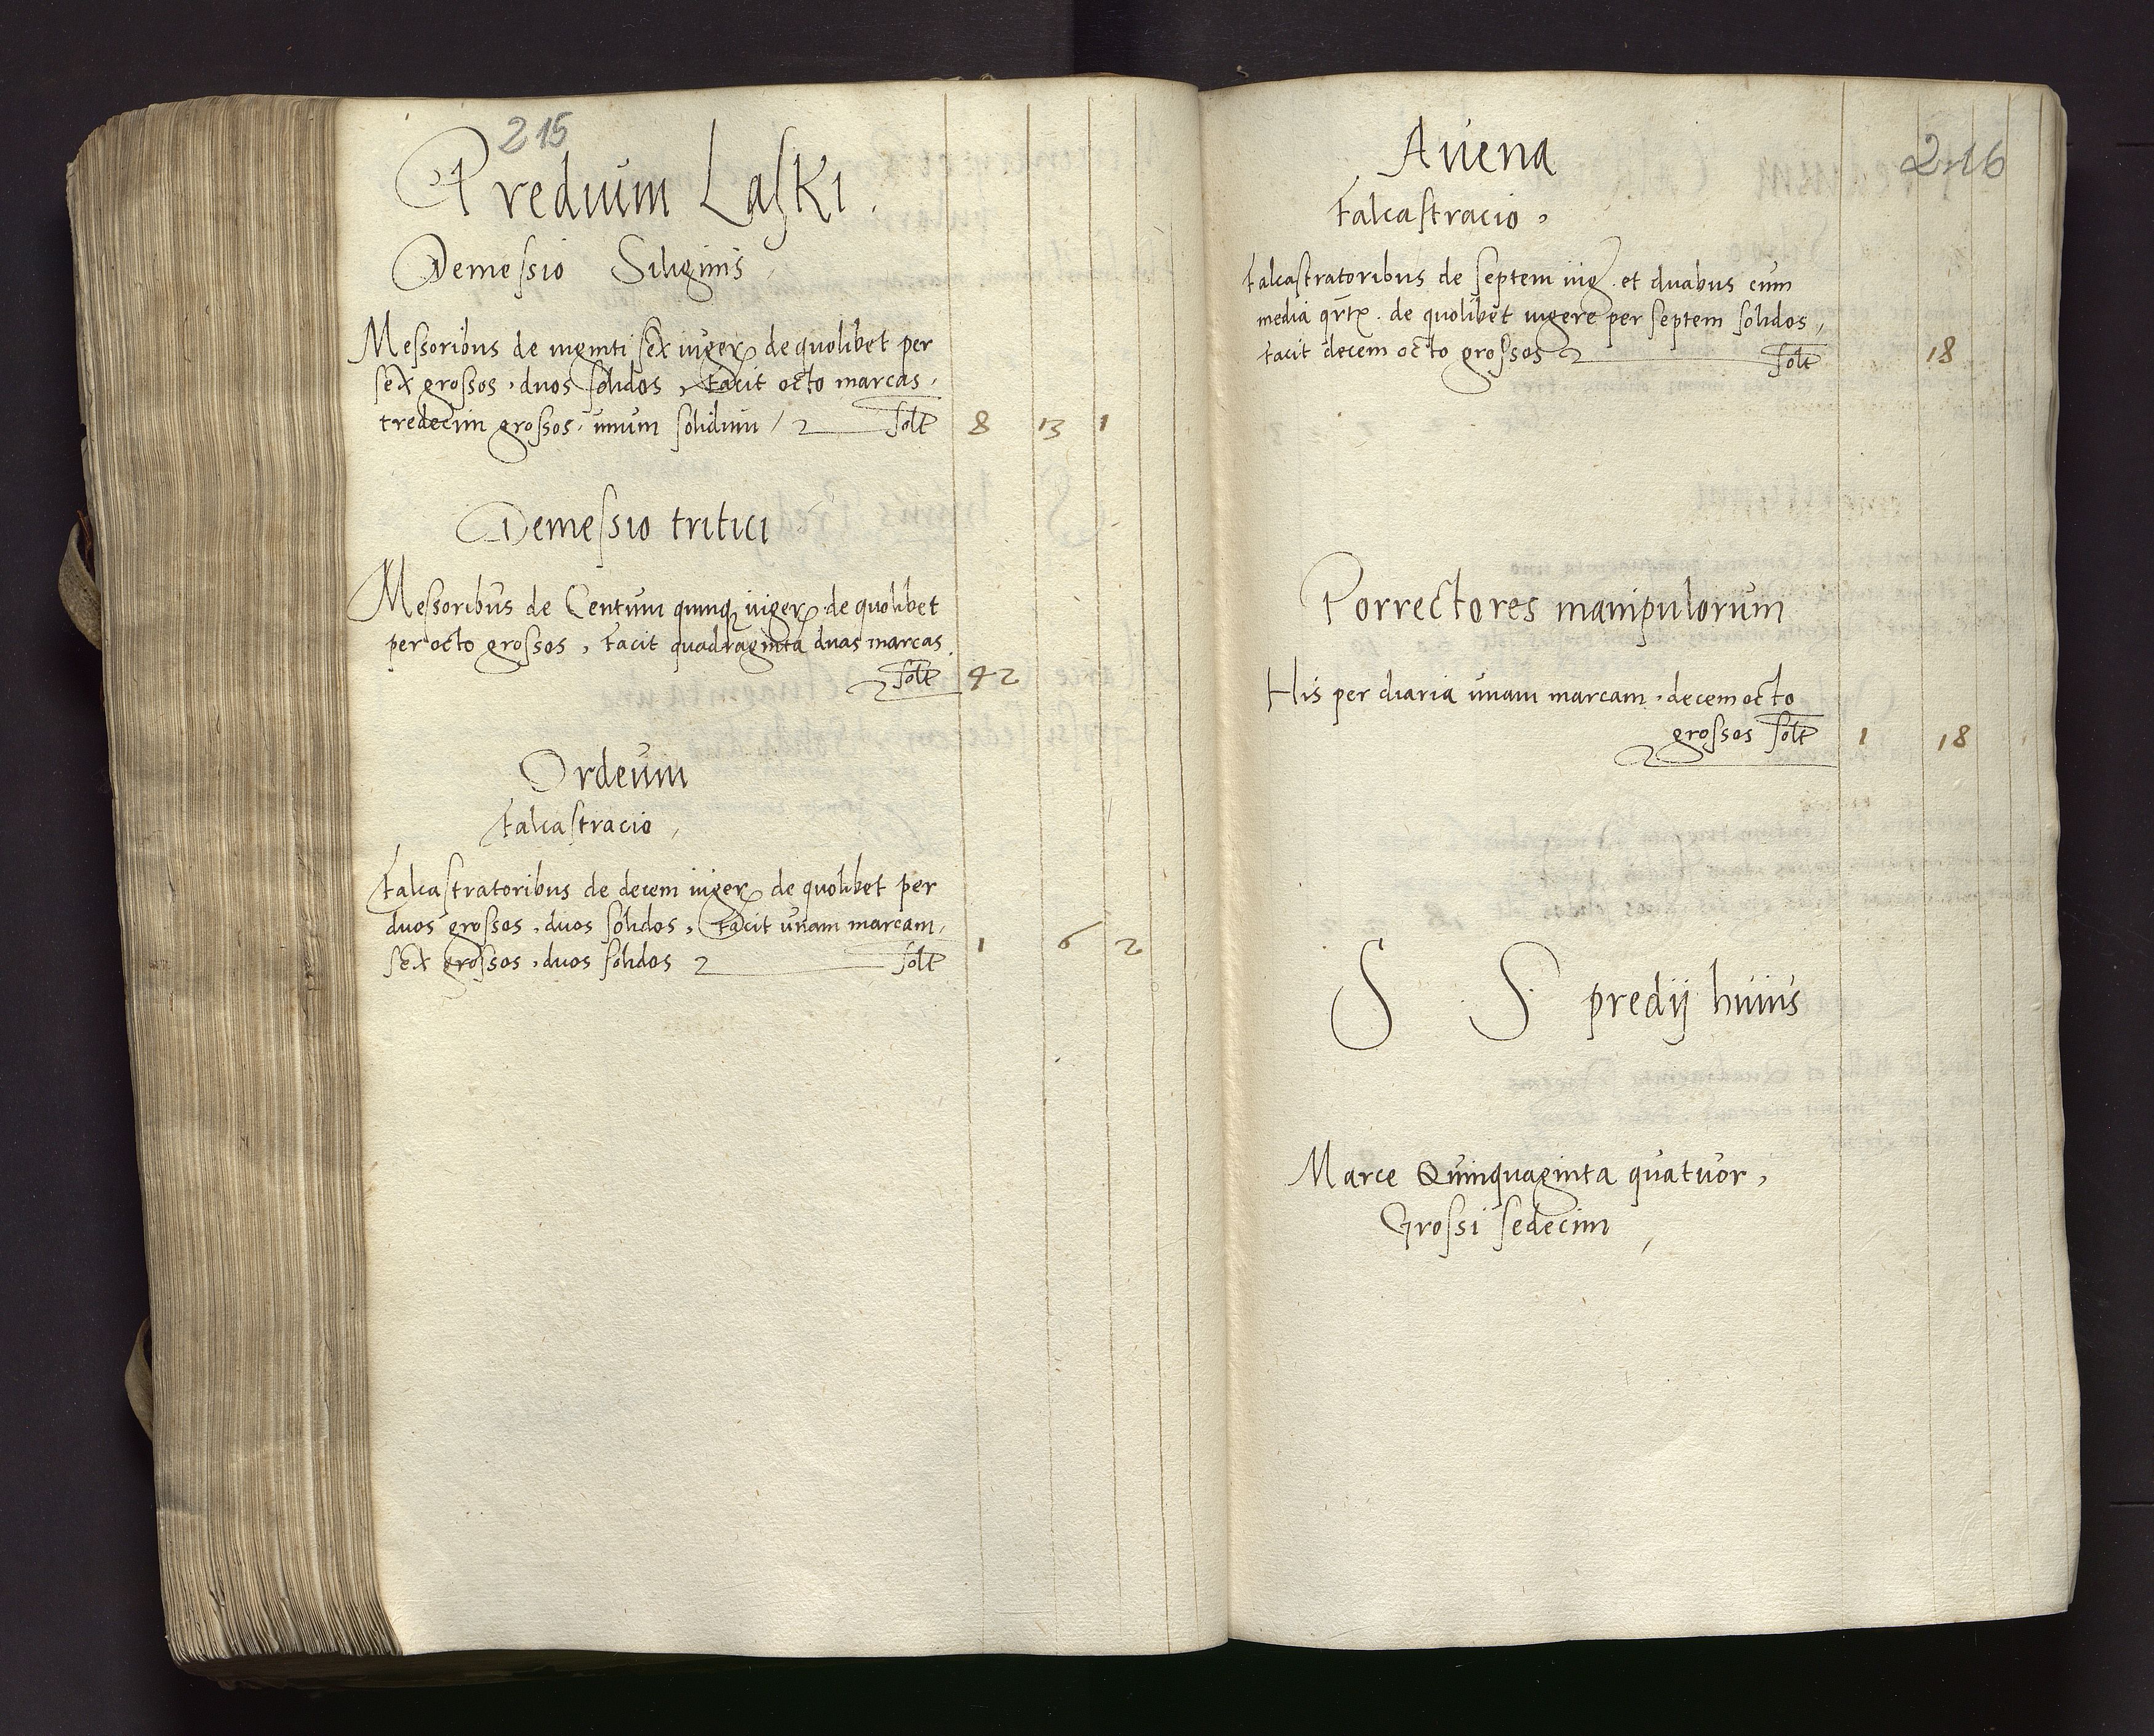 215
Predium Laski
Demessio Siliginis
Messoribus de viginti sex iuger de quolibet per
sex grossos, duos solidos, facit octo marcas,
tredecim grossos, unum solidum solt 8 13 1
Demessio tritici
Messoribus de Centum quinq iuger de quolibet
per octo grossos, facit quadraginta duas marcas
solt 42
Ordeum
falcastracio,
falcastratoribus de decem iuger de quolibet per
duos grossos, duos solidos, facit unam marcam,
sex grossos, duos solidos solt 1 6 2
216
Avena
falcastracio,
falcastratoribus de septem iug. et duabus cum
media qrt. de quolibet iugere per septem solidos,
facit decem octo grossos solt 18
Porrectores manipulorum
His per diaria unam marcam, decem octo
grossos solt 1 18
S S predij huius
Marce Quinquaginta quatuor,
Grossi sedecim,